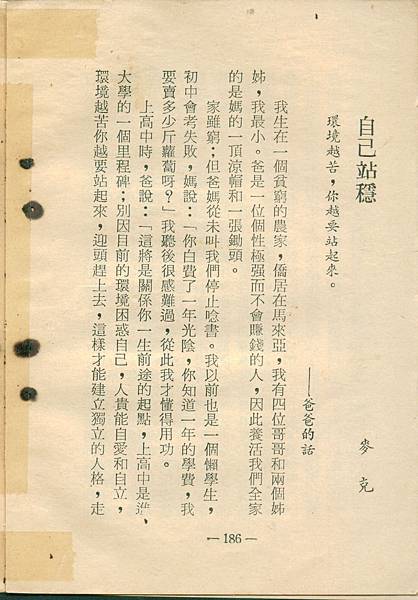 自己站穩
麥克
環境越苦，你越要站起來。
——爸爸的話
我生在一個貧窮的農家，僑居在馬來亞，我有四位哥哥和兩個姊
姊，我最小。爸是一位個性極强而不會賺錢的人，因此養活我們全家
的是媽的一頂涼帽和一張鋤頭。
家雖窮；但爸媽從未叫我們停止唸書。我以前也是一個懶學生，
初中會考失敗，媽說：「你白費了一年光陰，你知道一年的學費，我
要賣多少斤蘿蔔呀？」我聽後很感難過，從此我才懂得用功。
上高中時，爸說：「這將是關係你一生前途的起點，上高中是進、
大學的一個里程碑；別因目前的環境困惑自己，人貴能自愛和自立，
環境越苦你越要站起來，迎頭趕上去，這樣才能建立獨立的人格，走
—186—